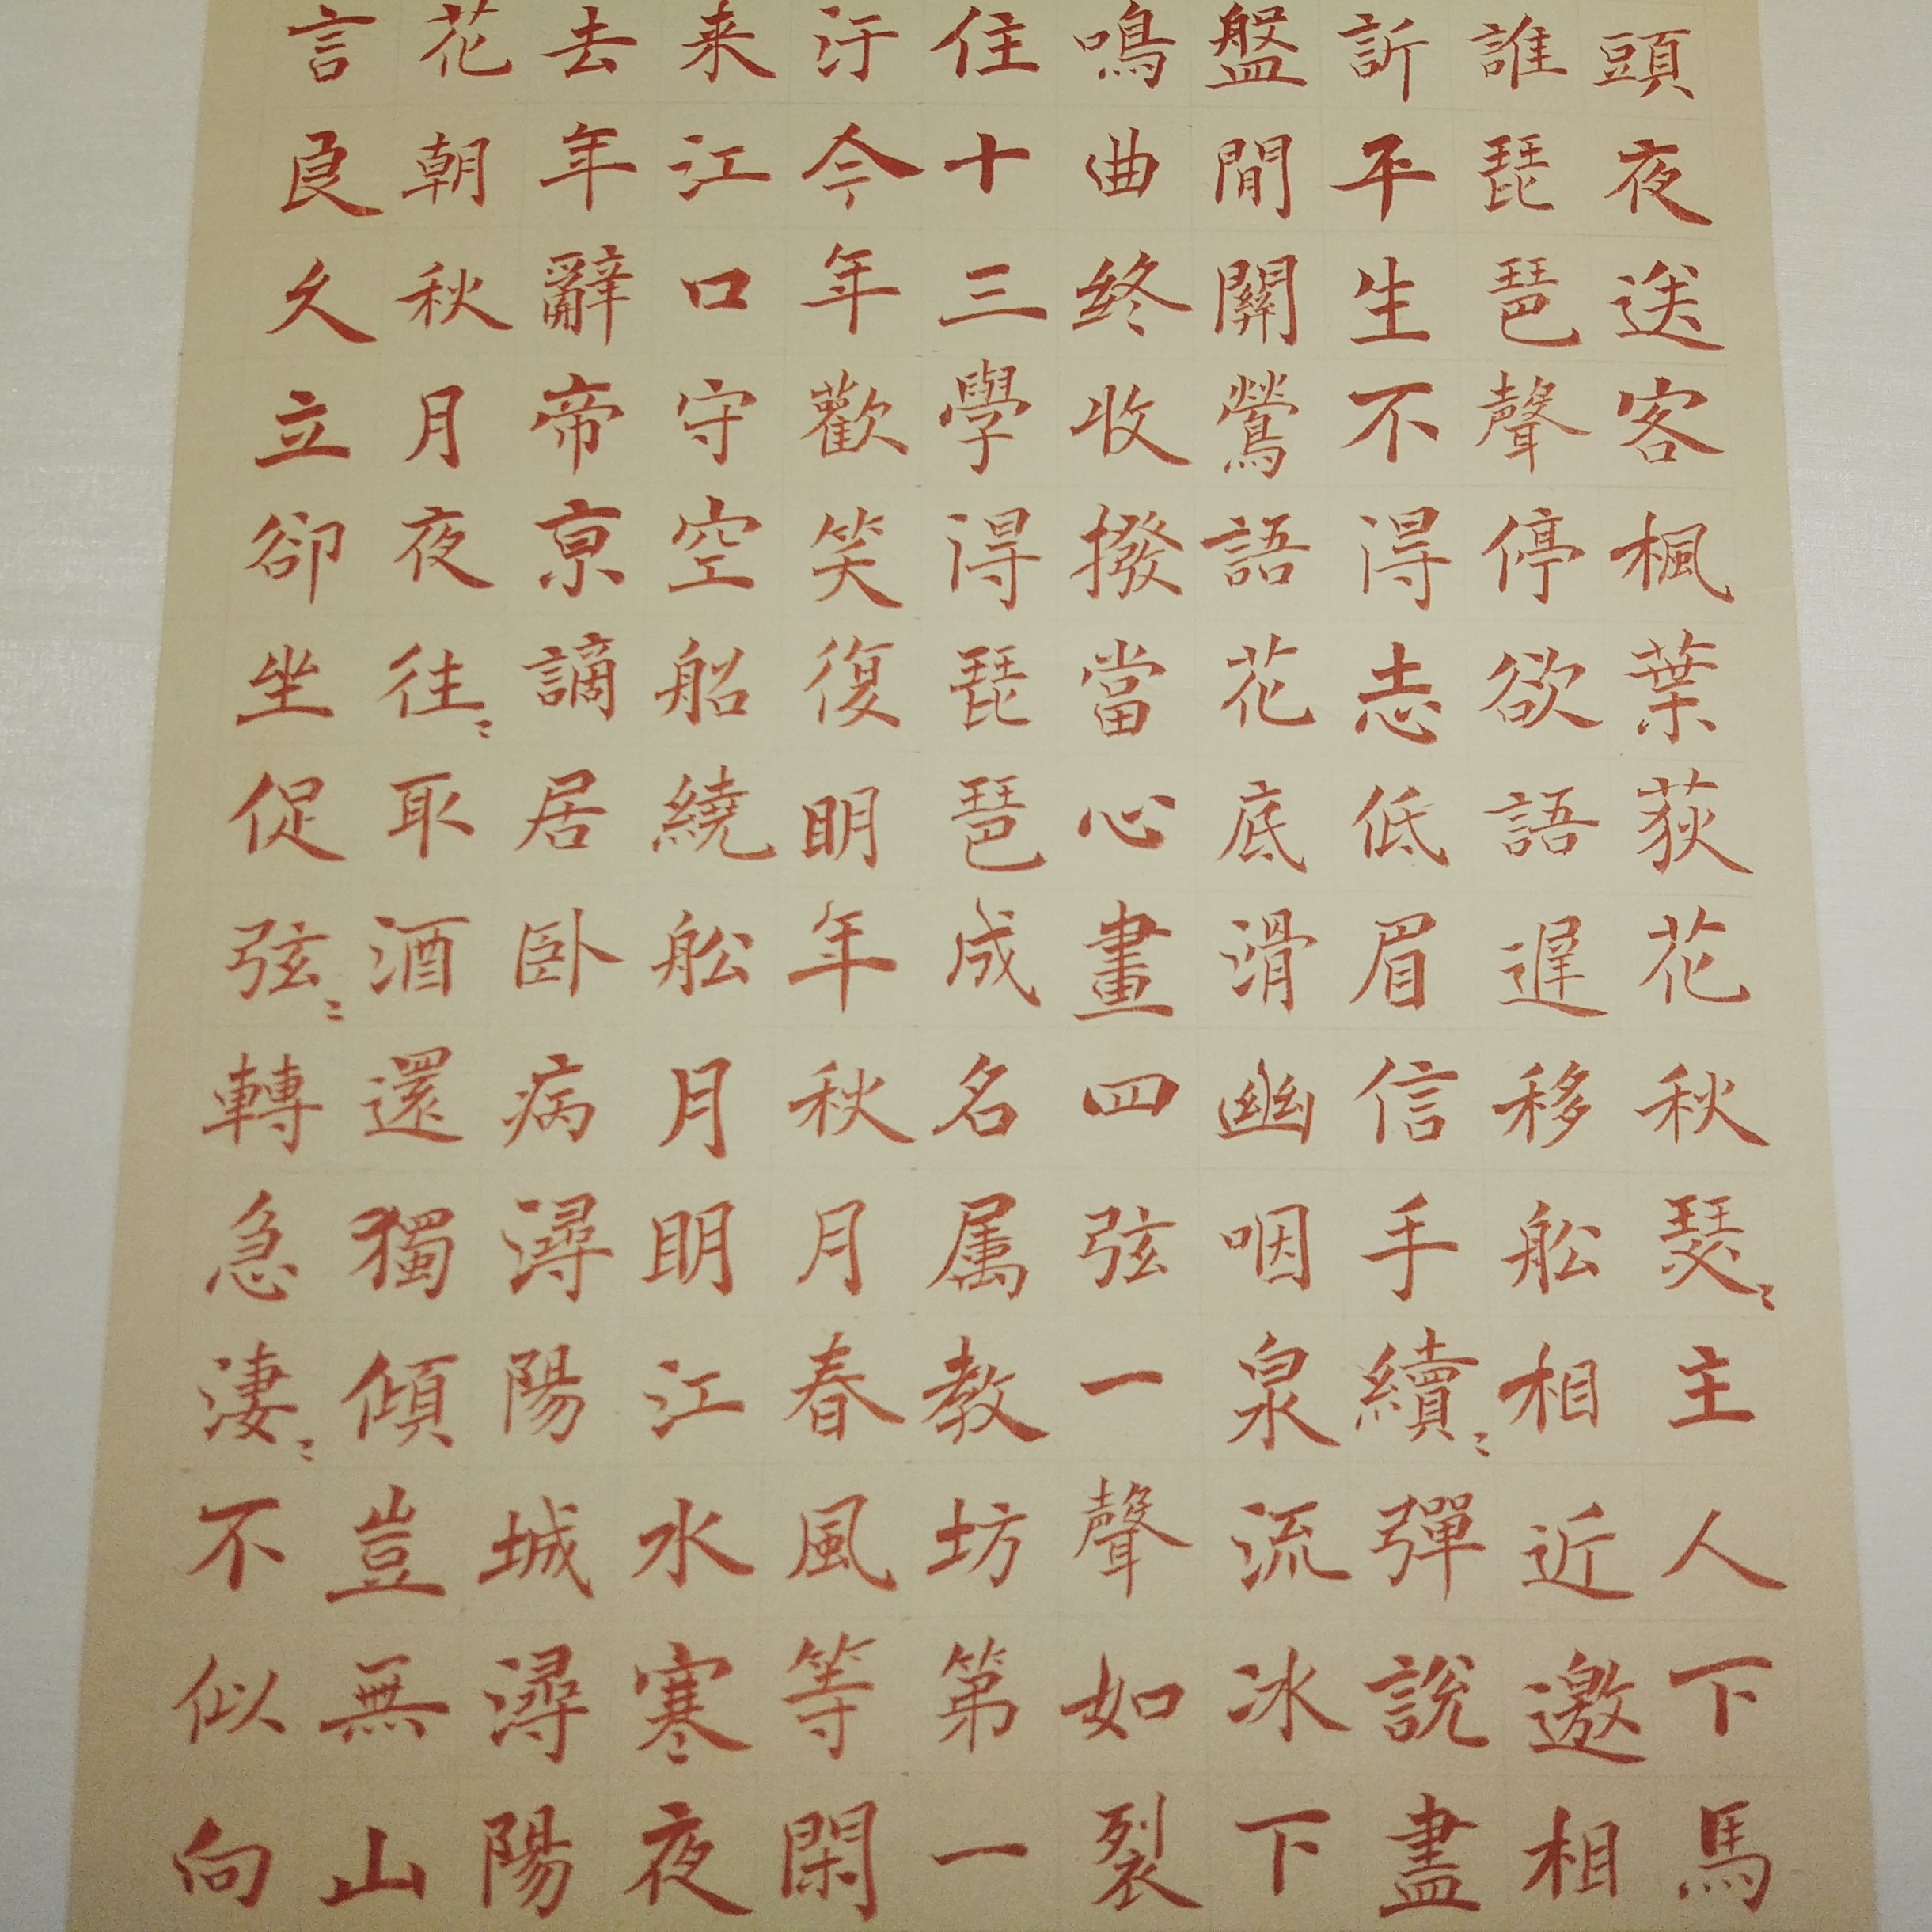 頭夜送客楓葉荻花秋瑟〻主人下馬
誰琵琶聲停欲語遲移舩相近邀相
訴平生不得志低眉信手續〻彈說盡
盤間關鶯語花底滑幽咽泉流冰下
鳴曲終收撥當心畫四弦一聲如裂
住十三學得琵琶成名属教坊第一
汙今年歡笑復明年秋月春風等閑
来江口守空船繞舩月明江水寒夜
去年辭帝京謫居卧病潯陽城潯陽
花朝秋月夜往〻取酒還獨傾豈無山
言良久立卻坐促弦〻轉急淒〻不似向